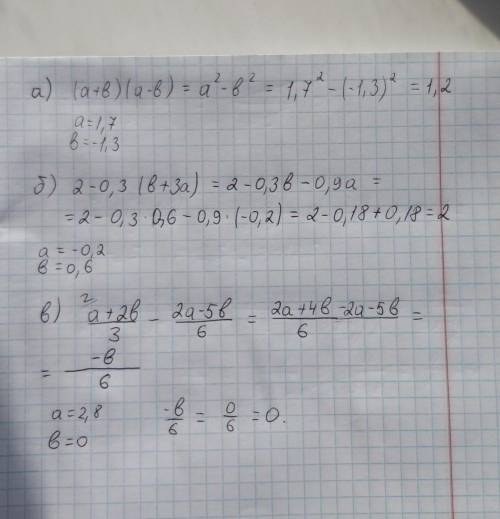 а) (а+в)(а-в) = а² - в² = 1,7² - (-1,3)² = 1,2
а=1,7
в=-1,3
б) 2-0,3 (в+3а) = 2-0,3в-0,9а =
= 2-0,3·0,6-0,9·(-0,2) = 2-0,18+0,18=2
а = -0,2
в = 0,6
в) ²а+2в/3 - 2а-5в/6 = 2а+4в-2а-5в/6 =
= -в/6
а=2,8 -в/6 = 0/6 = 0.
в=0